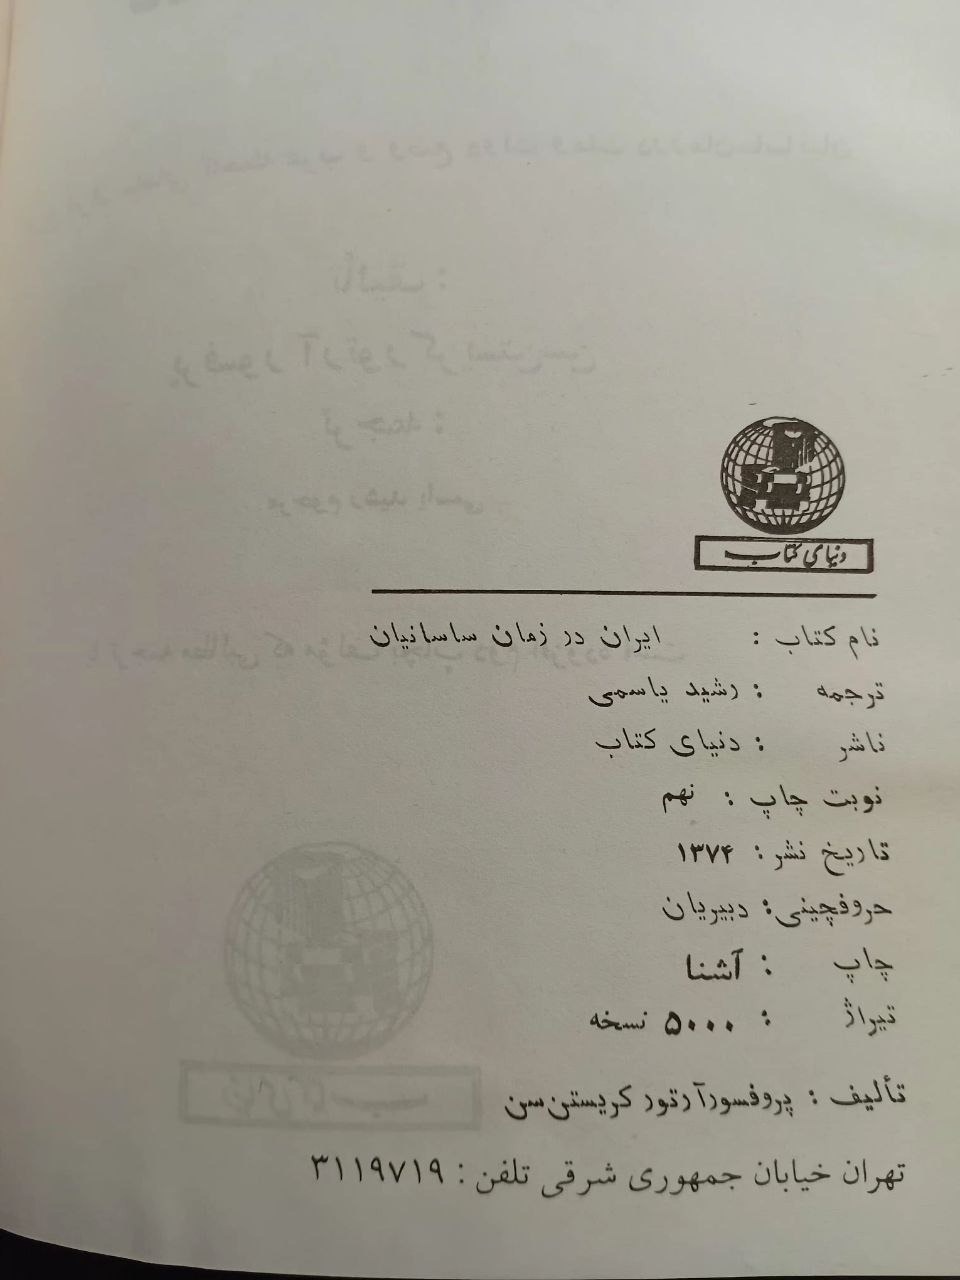 دنیای کتاب
نام کتاب : ایران در زمان ساسانیان
ترجمه : رشید یاسمی
ناشر : دنیای کتاب
نوبت چاپ : نهم
تاریخ نشر : ۱۳۷۴
حروفچینی : دبیریان
چاپ : آشنا
تیراژ : ۵۰۰۰ نسخه
تألیف : پروفسور آرتور کریستن‌سن
تهران خیابان جمهوری شرقی تلفن : ۳۱۱۹۷۱۹